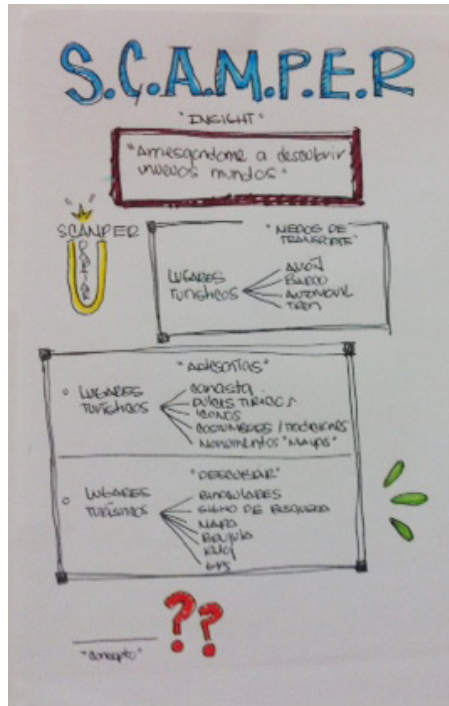 S.C.A.M.P.E.R
"INSIGHT"
"Arriesgandome a descubrir
nuevos mundos"
SCAMPER
"MEDIOS DE
TRANSPORTE"
LUGARES
TURISTICOS
AVION
BARCO
AUTOMOVIL
TREN
"ARTESANÍAS"
LUGARES
TURÍSTICOS
canasta
DULCES TIPICOS
ICONOS
COSTUMBRES / TRADICIONES
Monumentos "MAYAS"
"DESCUBRIR"
LUGARES
TURÍSTICOS
BINOCULARES
SIGNO DE BUSQUEDA
MAPA
BRUJULA
GPS
??
"concepto"